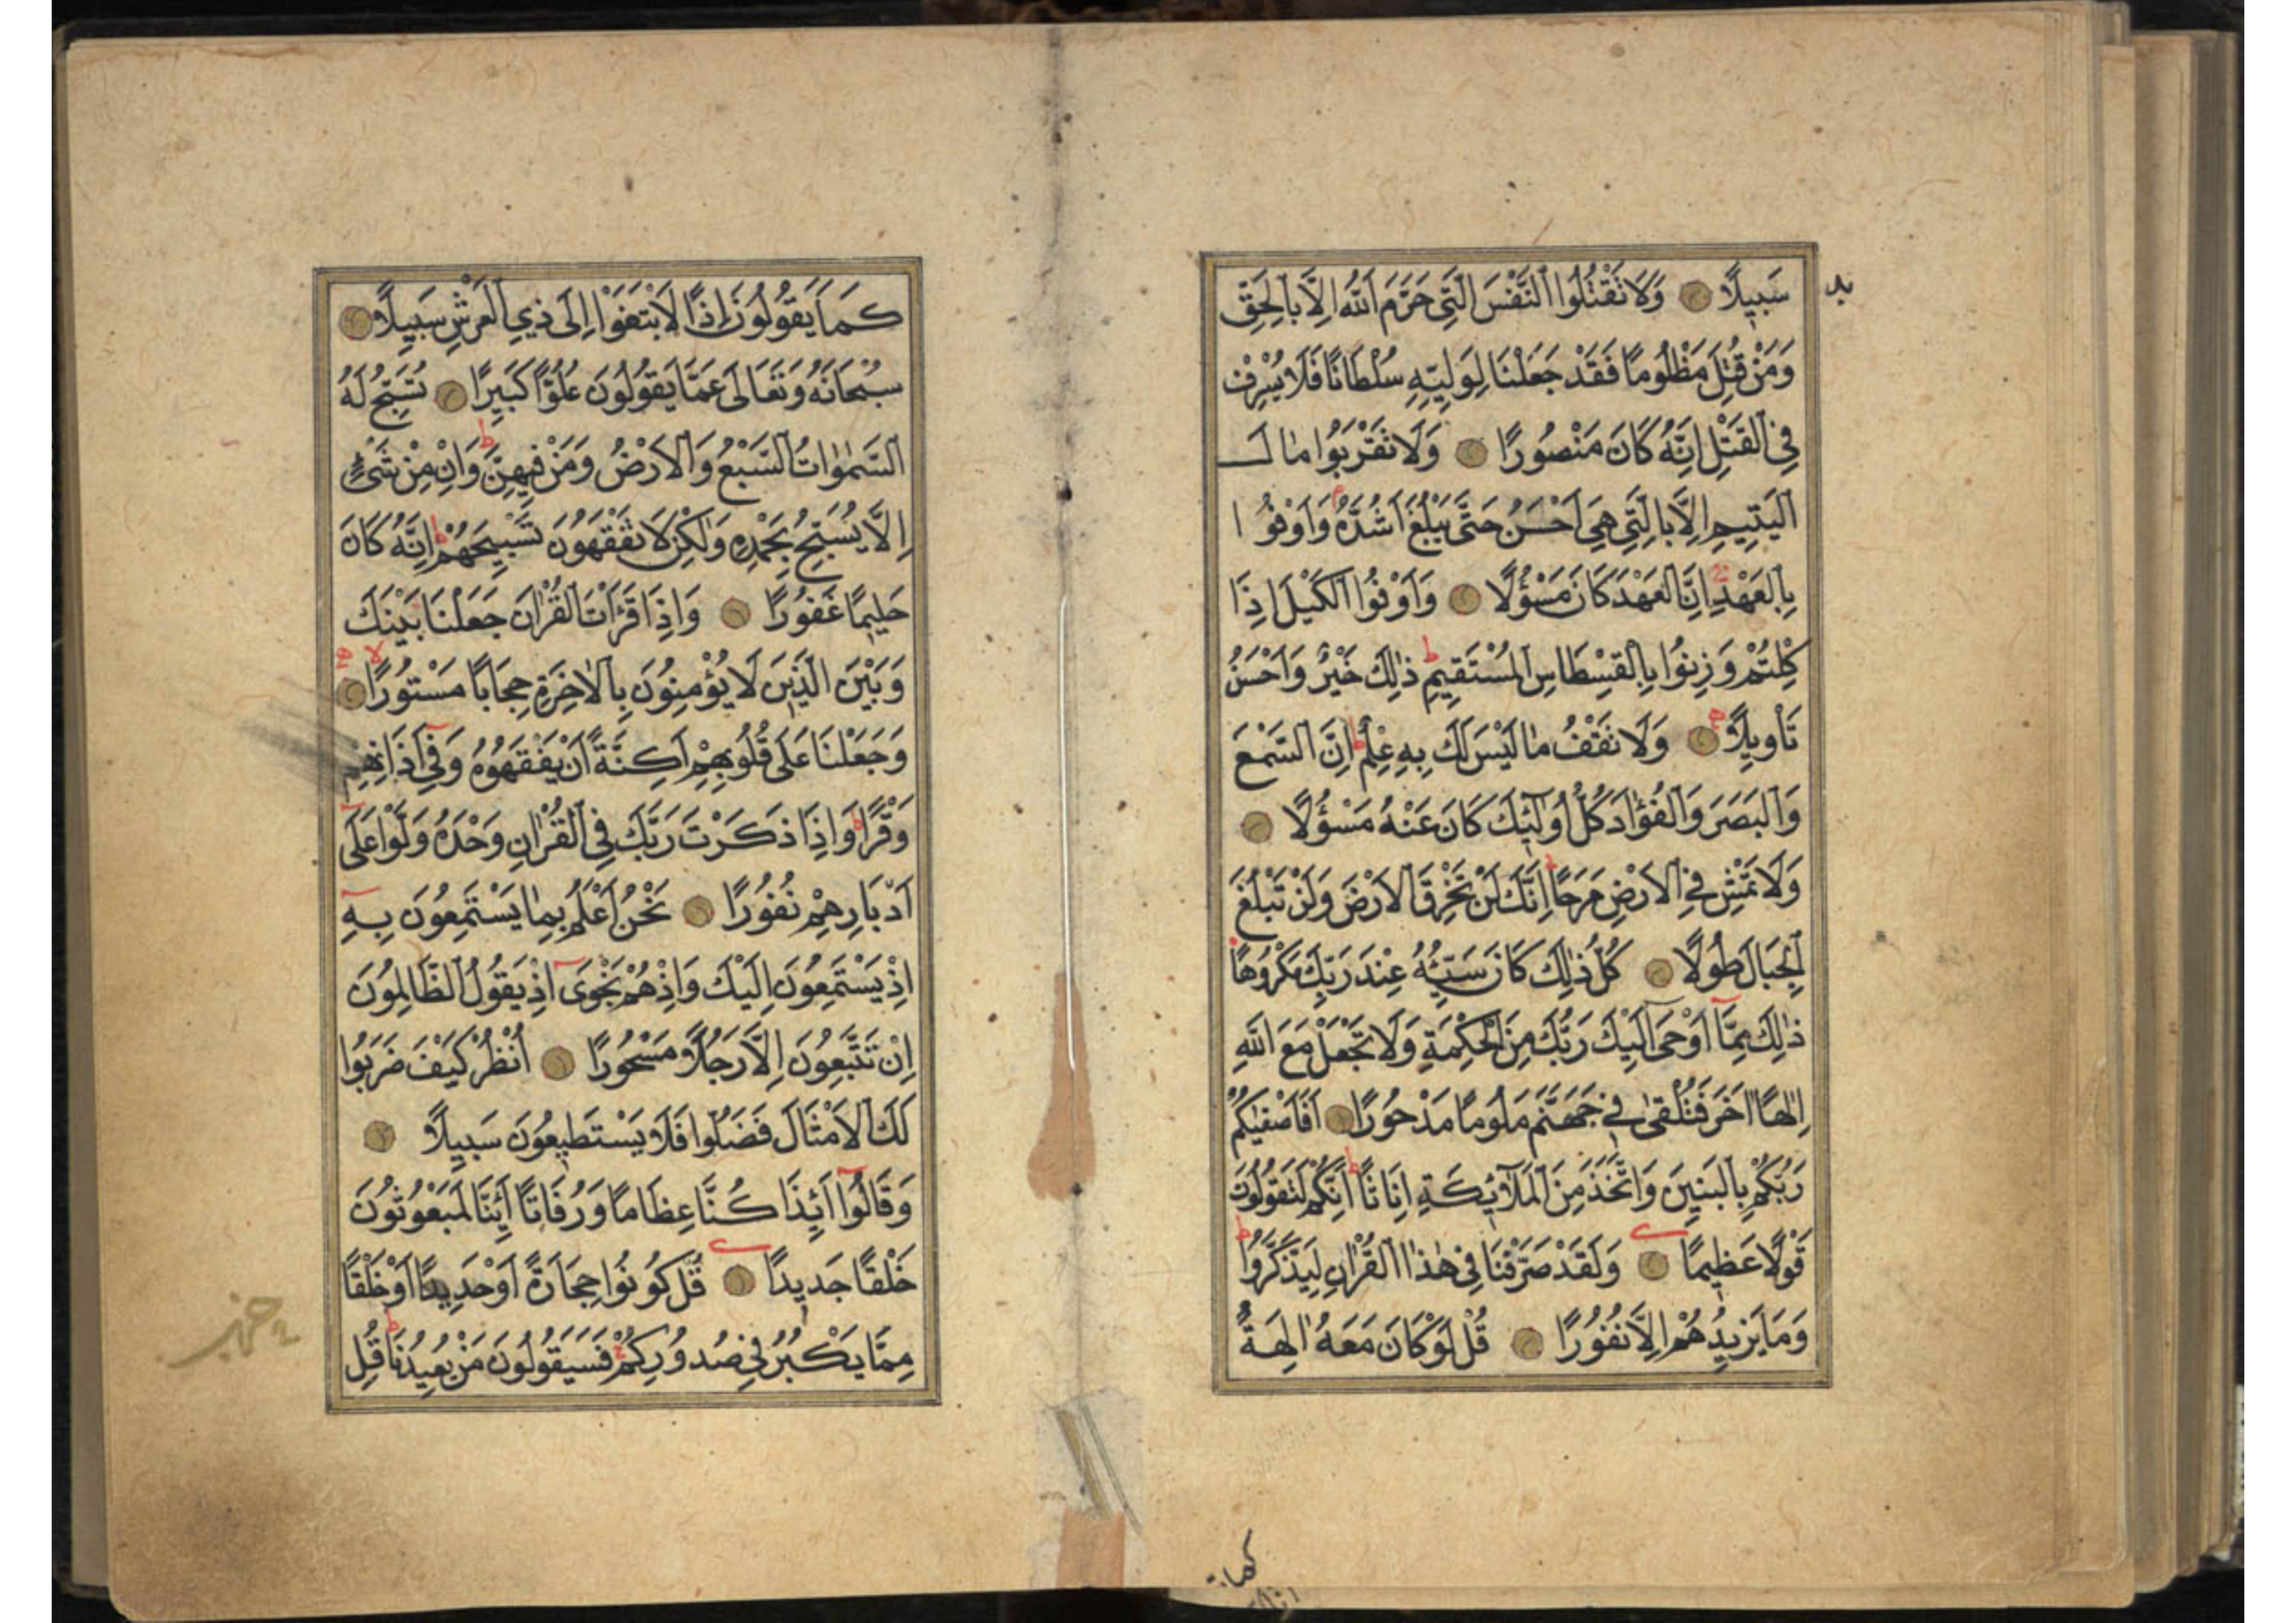 سَبِيلًا وَلَا تَقْتُلُوا النَّفْسَ الَّتِي حَرَّمَ اللَّهُ إِلَّا بِالْحَقِّ
وَمَنْ قُتِلَ مَظْلُومًا فَقَدْ جَعَلْنَا لِوَلِيِّهِ سُلْطَانًا فَلَا يُسْرِفْ
فِي الْقَتْلِ اِنَّهُ كَانَ مَنْصُورًا وَلَا تَقْرَبُوا مَالَ
الْيَتِيمِ اِلَّا بِالَّتِي هِيَ اَحْسَنُ حَتَّى يَبْلُغَ اَشُدَّهُ وَاَوْفُوا
بِالْعَهْدِ اِنَّ الْعَهْدَ كَانَ مَسْؤُلًا وَاَوْفُوا الْكَيْلَ اِذَا
كِلْتُمْ وَزِنُوا بِالْقِسْطَاسِ الْمُسْتَقِيمِ ذٰلِكَ خَيْرٌ وَاَحْسَنُ
تَأْوِيلًا وَلَا تَقْفُ مَا لَيْسَ لَكَ بِهِ عِلْمٌ اِنَّ السَّمْعَ
وَالْبَصَرَ وَالْفُؤَادَ كُلُّ اُولٰئِكَ كَانَ عَنْهُ مَسْؤُلًا
وَلَا تَمْشِ فِي الْاَرْضِ مَرَحًا اِنَّكَ لَنْ تَخْرِقَ الْاَرْضَ وَلَنْ تَبْلُغَ
الْجِبَالَ طُولًا كُلُّ ذٰلِكَ كَانَ سَيِّئُهُ عِنْدَ رَبِّكَ مَكْرُوهًا
ذٰلِكَ مِمَّا اَوْحَى اِلَيْكَ رَبُّكَ مِنَ الْحِكْمَةِ وَلَا تَجْعَلْ مَعَ اللهِ
اِلٰهًا اٰخَرَ فَتُلْقٰى فِي جَهَنَّمَ مَلُومًا مَدْحُورًا اَفَاَصْفٰيكُمْ
رَبُّكُمْ بِالْبَنِينَ وَاتَّخَذَ مِنَ الْمَلَائِكَةِ اِنَاثًا اِنَّكُمْ لَتَقُولُونَ
قَوْلًا عَظِيمًا وَلَقَدْ صَرَّفْنَا فِي هٰذَا الْقُرْاٰنِ لِيَذَّكَّرُوا
وَمَا يَزِيدُهُمْ اِلَّا نُفُورًا قُلْ لَوْ كَانَ مَعَهُ اٰلِهَةٌ
كما
كَمَا يَقُولُونَ اِذًا لَابْتَغَوْا اِلَى ذِي الْعَرْشِ سَبِيلًا
سُبْحَانَهُ وَتَعَالَى عَمَّا يَقُولُونَ عُلُوًّا كَبِيرًا تُسَبِّحُ لَهُ
السَّمٰوَاتُ السَّبْعُ وَالْاَرْضُ وَمَنْ فِيهِنَّ وَاِنْ مِنْ شَيْءٍ
اِلَّا يُسَبِّحُ بِحَمْدِهِ وَلٰكِنْ لَا تَفْقَهُونَ تَسْبِيحَهُمْ اِنَّهُ كَانَ
حَلِيمًا غَفُورًا وَاِذَا قَرَأْتَ الْقُرْاٰنَ جَعَلْنَا بَيْنَكَ
وَبَيْنَ الَّذِينَ لَا يُؤْمِنُونَ بِالْاٰخِرَةِ حِجَابًا مَسْتُورًا
وَجَعَلْنَا عَلَى قُلُوبِهِمْ اَكِنَّةً اَنْ يَفْقَهُوهُ وَفِي اٰذَانِهِمْ
وَقْرًا وَاِذَا ذَكَرْتَ رَبَّكَ فِي الْقُرْاٰنِ وَحْدَهُ وَلَّوْا عَلَى
اَدْبَارِهِمْ نُفُورًا نَحْنُ اَعْلَمُ بِمَا يَسْتَمِعُونَ بِهِ
اِذْ يَسْتَمِعُونَ اِلَيْكَ وَاِذْ هُمْ نَجْوَى اِذْ يَقُولُ الظَّالِمُونَ
اِنْ تَتَّبِعُونَ اِلَّا رَجُلًا مَسْحُورًا اُنْظُرْ كَيْفَ ضَرَبُوا
لَكَ الْاَمْثَالَ فَضَلُّوا فَلَا يَسْتَطِيعُونَ سَبِيلًا
وَقَالُوا اَئِذَا كُنَّا عِظَامًا وَرُفَاتًا اَئِنَّا لَمَبْعُوثُونَ
خَلْقًا جَدِيدًا قُلْ كُونُوا حِجَارَةً اَوْ حَدِيدًا اَوْ خَلْقًا
مِمَّا يَكْبُرُ فِي صُدُورِكُمْ فَسَيَقُولُونَ مَنْ يُعِيدُنَا قُلِ